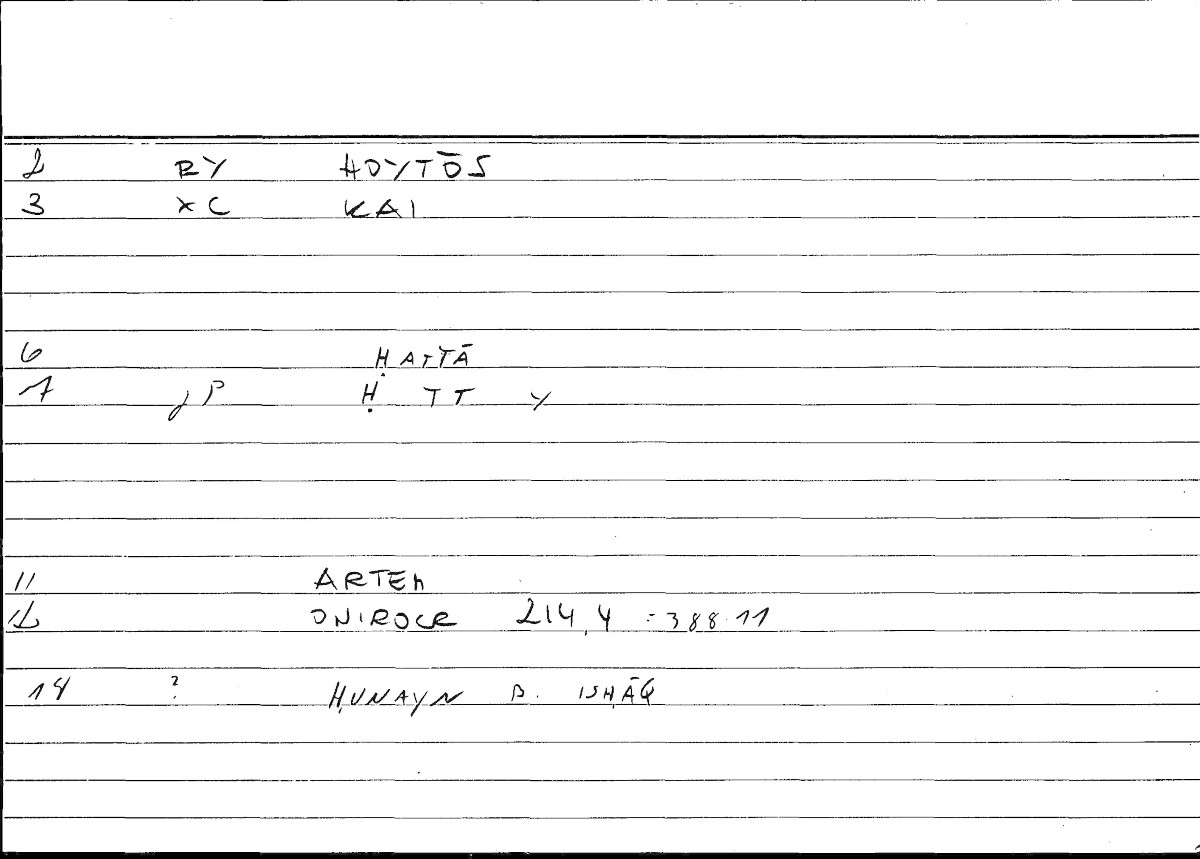 2 RY HOYTŌS
3 XC KAI
6 ḤATTĀ
7 JP Ḥ TT Y
11 ARTEM
12 ONIROCR 214,4 = 388.11
14 ? ḤUNAYN B. ISḤĀQ